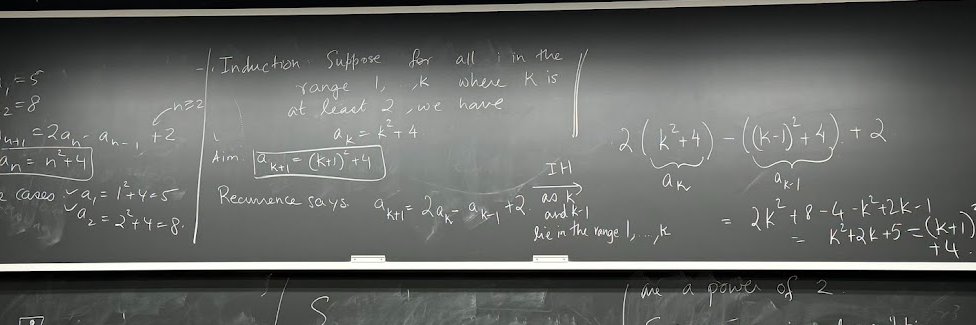 ₁ = 5
₂ = 8
n≥2
ₙ₊₁ = 2aₙ - aₙ₋₁ + 2
aₙ = n² + 4
cases ✓ a₁ = 1² + 4 = 5
✓ a₂ = 2² + 4 = 8.
Induction. Suppose for all i in the
range 1, .., k where k is
at least 2, we have
aₖ = k² + 4
Aim. aₖ₊₁ = (k+1)² + 4
Recurrence says. aₖ₊₁ = 2aₖ - aₖ₋₁ + 2.
IH
as k
and k-1
lie in the range 1, ..., k
2(k²+4) - ((k-1)²+4) + 2
aₖ aₖ₋₁
= 2k² + 8 - 4 - k² + 2k - 1
= k² + 2k + 5 = (k+1)²
+ 4.
are a power of 2.
S